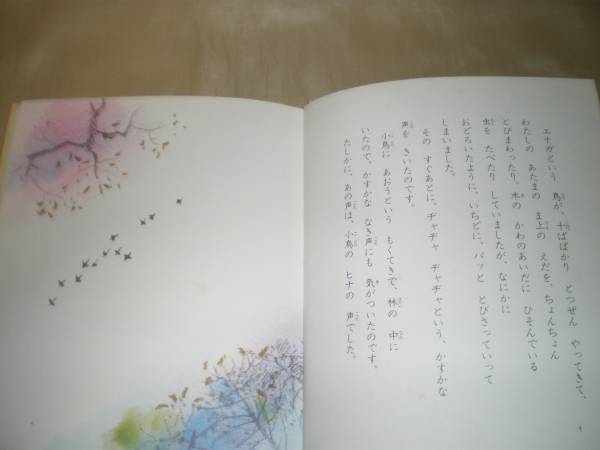 エナガという 鳥が、十ぱばかり とつぜん やってきて、
わたしの あたまの ま上の えだを、ちょんちょん
とびまわったり、木の かわのあいだに ひそんでいる
虫を たべたり していましたが、なにかに
おどろいたように、いちどに、パッと とびさっていって
しまいました。
その すぐあとに、ヂャヂャ ヂャヂャという、かすかな
声を きいたのです。
小鳥に あおうという もくてきで、林の 中に
いたので、かすかな なき声にも 気がついたのです。
たしかに、あの声は、小鳥の ヒナの 声でした。
4
5